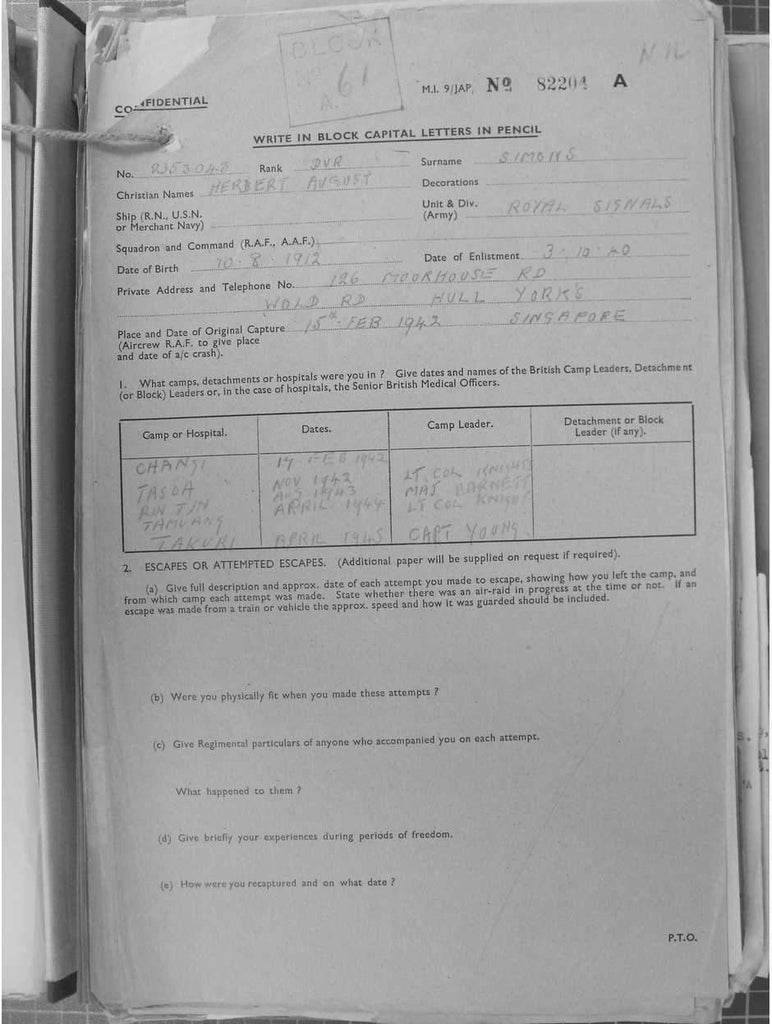 BLOCK
Nº 61
A.
NIL
M.I. 9/JAP. Nº 82204 A
CONFIDENTIAL
WRITE IN BLOCK CAPITAL LETTERS IN PENCIL
No. Rank DVR Surname SIMONS
Christian Names HERBERT AUGUST Decorations
Ship (R.N., U.S.N. or Merchant Navy) Unit & Div. (Army) ROYAL SIGNALS
Squadron and Command (R.A.F., A.A.F.)
Date of Birth 10·8·1912 Date of Enlistment 3·10·40
Private Address and Telephone No. 126 MOORHOUSE RD
WOLD RD HULL YORKS
Place and Date of Original Capture 15th FEB 1942 SINGAPORE
(Aircrew R.A.F. to give place
and date of a/c crash).
1. What camps, detachments or hospitals were you in ? Give dates and names of the British Camp Leaders, Detachment
(or Block) Leaders or, in the case of hospitals, the Senior British Medical Officers.
Camp or Hospital. Dates. Camp Leader. Detachment or Block Leader (if any).
CHANGI 17 FEB 1942 LT. COL KNIGHTS
TASOA NOV 1942 MAJ BARNETT
RIN TIN AUG 1943 LT COL KNIGHT
TAMUANG APRIL 1944
TAKURI APRIL 1945 CAPT YOUNG
2. ESCAPES OR ATTEMPTED ESCAPES. (Additional paper will be supplied on request if required).
(a) Give full description and approx. date of each attempt you made to escape, showing how you left the camp, and
from which camp each attempt was made. State whether there was an air-raid in progress at the time or not. If an
escape was made from a train or vehicle the approx. speed and how it was guarded should be included.
(b) Were you physically fit when you made these attempts ?
(c) Give Regimental particulars of anyone who accompanied you on each attempt.
What happened to them ?
(d) Give briefly your experiences during periods of freedom.
(e) How were you recaptured and on what date ?
P.T.O.